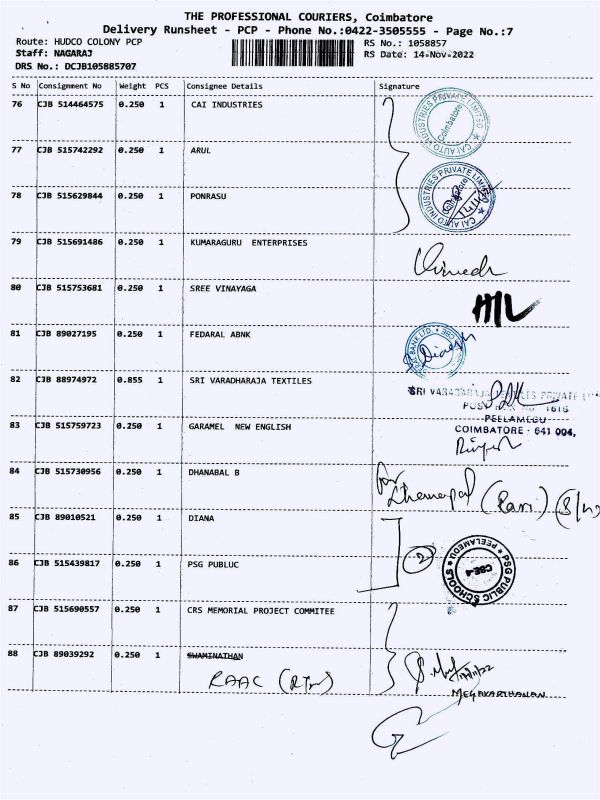 THE PROFESSIONAL COURIERS, Coimbatore
Delivery Runsheet - PCP - Phone No.:0422-3505555 - Page No.:7
Route: HUDCO COLONY PCP RS No.: 1058857
Staff: NAGARAJ RS Date: 14-Nov-2022
DRS No.: DCJB105885707
S No Consignment No Weight PCS Consignee Details Signature
76 CJB 514464575 0.250 1 CAI INDUSTRIES
CAI AUTO INDUSTRIES PRIVATE LIMITED
Coimbatore
77 CJB 515742292 0.250 1 ARUL
78 CJB 515629844 0.250 1 PONRASU
CAI AUTO INDUSTRIES PRIVATE LIMITED
79 CJB 515691486 0.250 1 KUMARAGURU ENTERPRISES
80 CJB 515753681 0.250 1 SREE VINAYAGA
81 CJB 89027195 0.250 1 FEDARAL ABNK
BANK LTD.
82 CJB 88974972 0.855 1 SRI VARADHARAJA TEXTILES
SRI VARADARAJA TEXTILES PRIVATE
1616
PEELAMEDU
COIMBATORE - 641 004.
83 CJB 515759723 0.250 1 GARAMEL NEW ENGLISH
84 CJB 515730956 0.250 1 DHANABAL B
for
(Ravi)
85 CJB 89010521 0.250 1 DIANA
2
86 CJB 515439817 0.250 1 PSG PUBLUC
PSG PUBLIC SCHOOLS
PEELAMEDU
CBE-4
87 CJB 515690557 0.250 1 CRS MEMORIAL PROJECT COMMITEE
88 CJB 89039292 0.250 1 SWAMINATHAN
RAAC